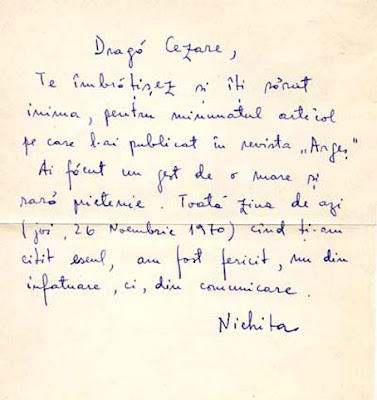 Dragă Cezare,
Te îmbrățișez și îți sărut
inima, pentru minunatul articol
pe care l-ai publicat în revista „Argeș"
Ai făcut un gest de o mare și
rară prietenie. Toată ziua de azi
(joi, 26 Noembrie 1970) cînd ți-am
citit eseul, am fost fericit, nu din
infatuare, ci, din comunicare.
Nichita